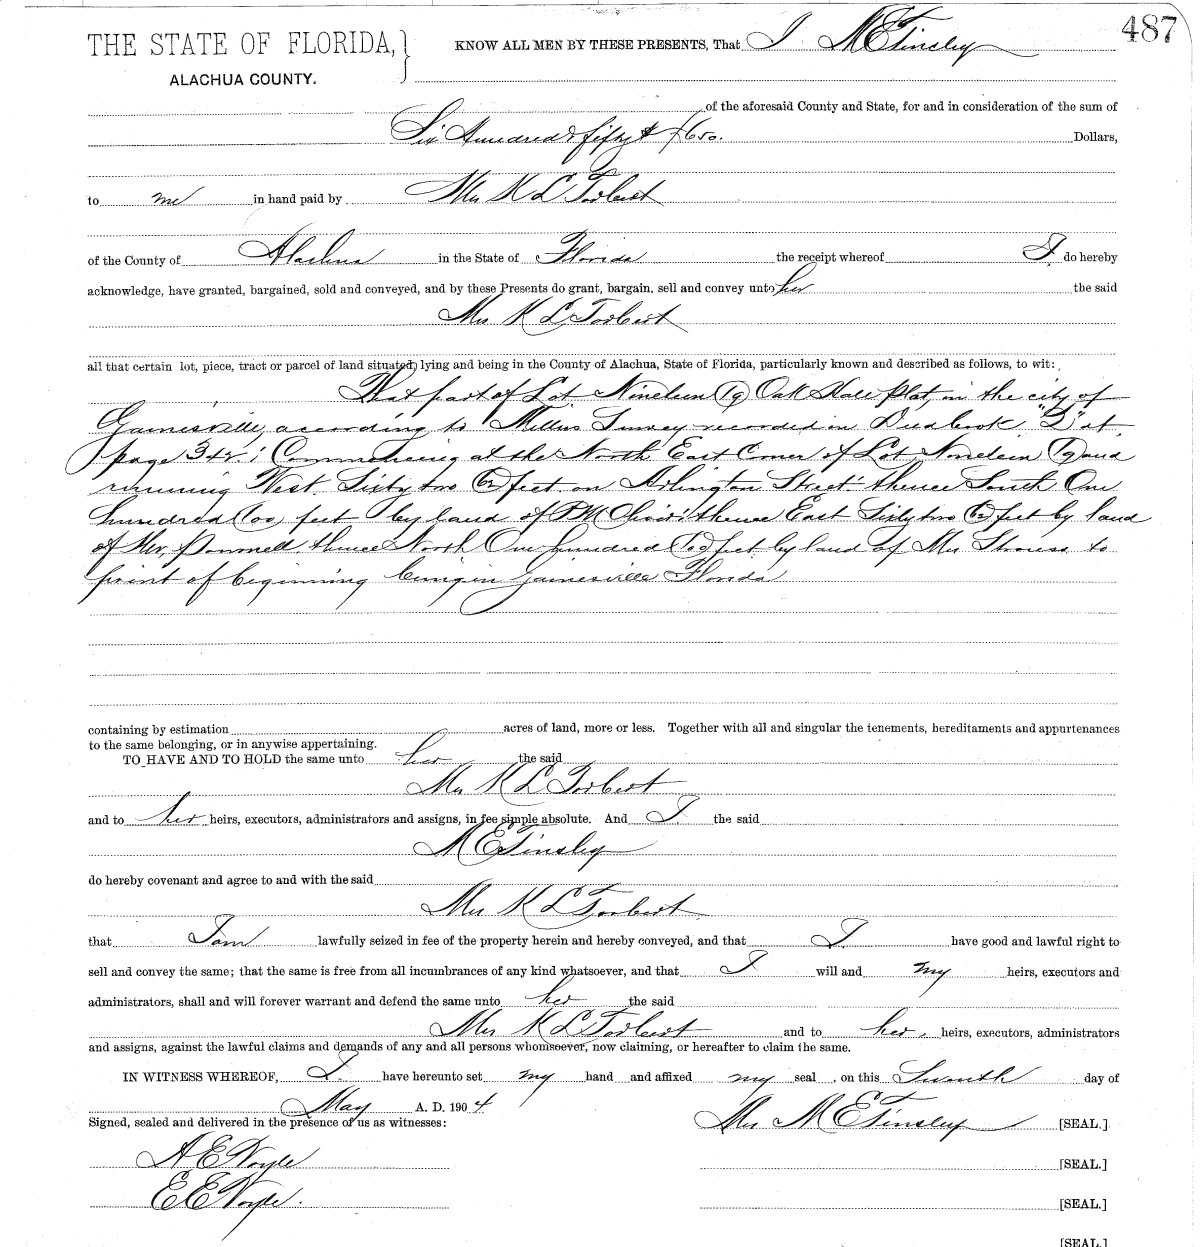 487
THE STATE OF FLORIDA,
ALACHUA COUNTY.
KNOW ALL MEN BY THESE PRESENTS, That I M E Tinsley
of the aforesaid County and State, for and in consideration of the sum of
Six Hundred & fifty & Dollars,
to me in hand paid by Mrs K L Torbert
of the County of Alachua in the State of Florida the receipt whereof I do hereby
acknowledge, have granted, bargained, sold and conveyed, and by these Presents do grant, bargain, sell and convey unto her the said
Mrs K L Torbert
all that certain lot, piece, tract or parcel of land situated, lying and being in the County of Alachua, State of Florida, particularly known and described as follows, to wit:
That part of Lot Nineteen (19) Oak Hall Plat, in the city of
Gainesville, according to Survey recorded in Deedbook "D" at
page 342: Commencing at the North East Corner of Lot Nineteen (19) and
running West Sixty two (62) feet on Arlington Street: thence South One
hundred (100) feet by land of thence East Sixty two (62) feet by land
of thence North One hundred (100) feet by land of to
point of beginning being in Gainesville Florida
containing by estimation acres of land, more or less. Together with all and singular the tenements, hereditaments and appurtenances
to the same belonging, or in anywise appertaining.
TO HAVE AND TO HOLD the same unto her the said
Mrs K L Torbert
and to her heirs, executors, administrators and assigns, in fee simple absolute. And I the said
M E Tinsley
do hereby covenant and agree to and with the said
Mrs K L Torbert
that I am lawfully seized in fee of the property herein and hereby conveyed, and that I have good and lawful right to
sell and convey the same; that the same is free from all incumbrances of any kind whatsoever, and that I will and my heirs, executors and
administrators, shall and will forever warrant and defend the same unto her the said
Mrs K L Torbert and to her heirs, executors, administrators
and assigns, against the lawful claims and demands of any and all persons whomsoever, now claiming, or hereafter to claim the same.
IN WITNESS WHEREOF, I have hereunto set my hand and affixed my seal, on this day of
May A. D. 1904
Signed, sealed and delivered in the presence of us as witnesses:
Mrs M E Tinsley [SEAL.]
A E Voyle [SEAL.]
E E Voyle. [SEAL.]
[SEAL.]